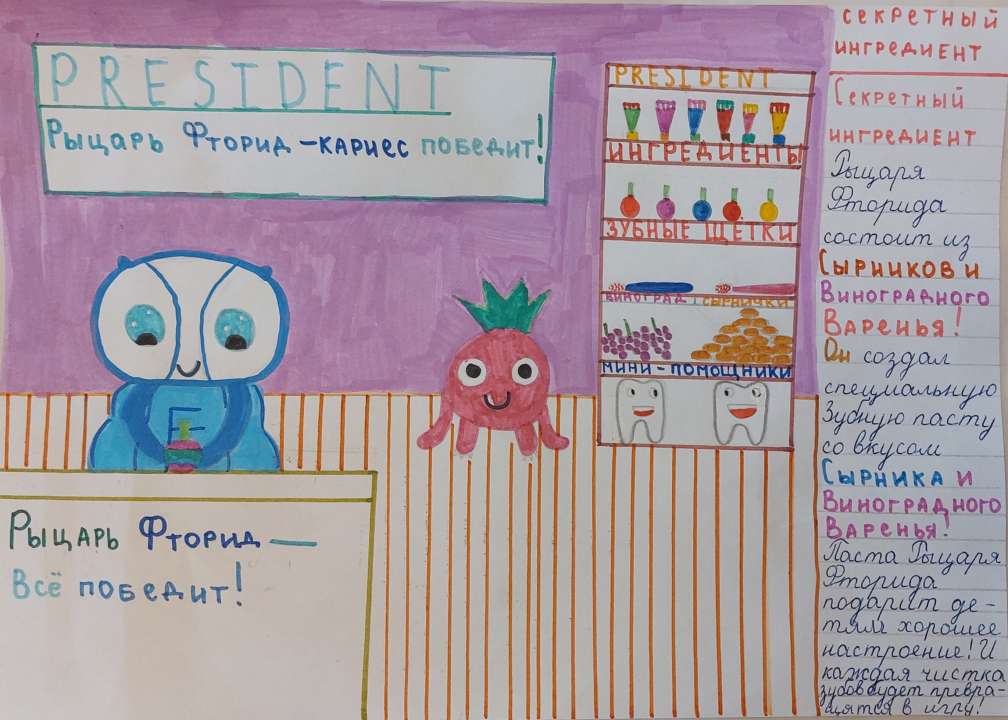 PRESIDENT
Рыцарь Фторид – кариес победит!
PRESIDENT
ИНГРЕДИЕНТЫ
ЗУБНЫЕ ЩЕТКИ
ВИНОГРАД СЫРНИЧКИ
МИНИ-ПОМОЩНИКИ
F
Рыцарь Фторид —
Всё победит!
СЕКРЕТНЫЙ
ИНГРЕДИЕНТ
Секретный
ингредиент
Рыцаря
Фторида
состоит из
Сырников и
Виноградного
Варенья!
Он создал
специальную
Зубную пасту
со вкусом
Сырника и
Виноградного
Варенья!
Паста Рыцаря
Фторида
подарит де-
тям хорошее
настроение! И
каждая чистка
зубов будет превра-
щятся в игру!